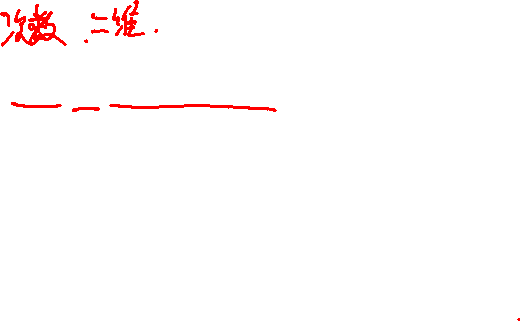 次数 二维